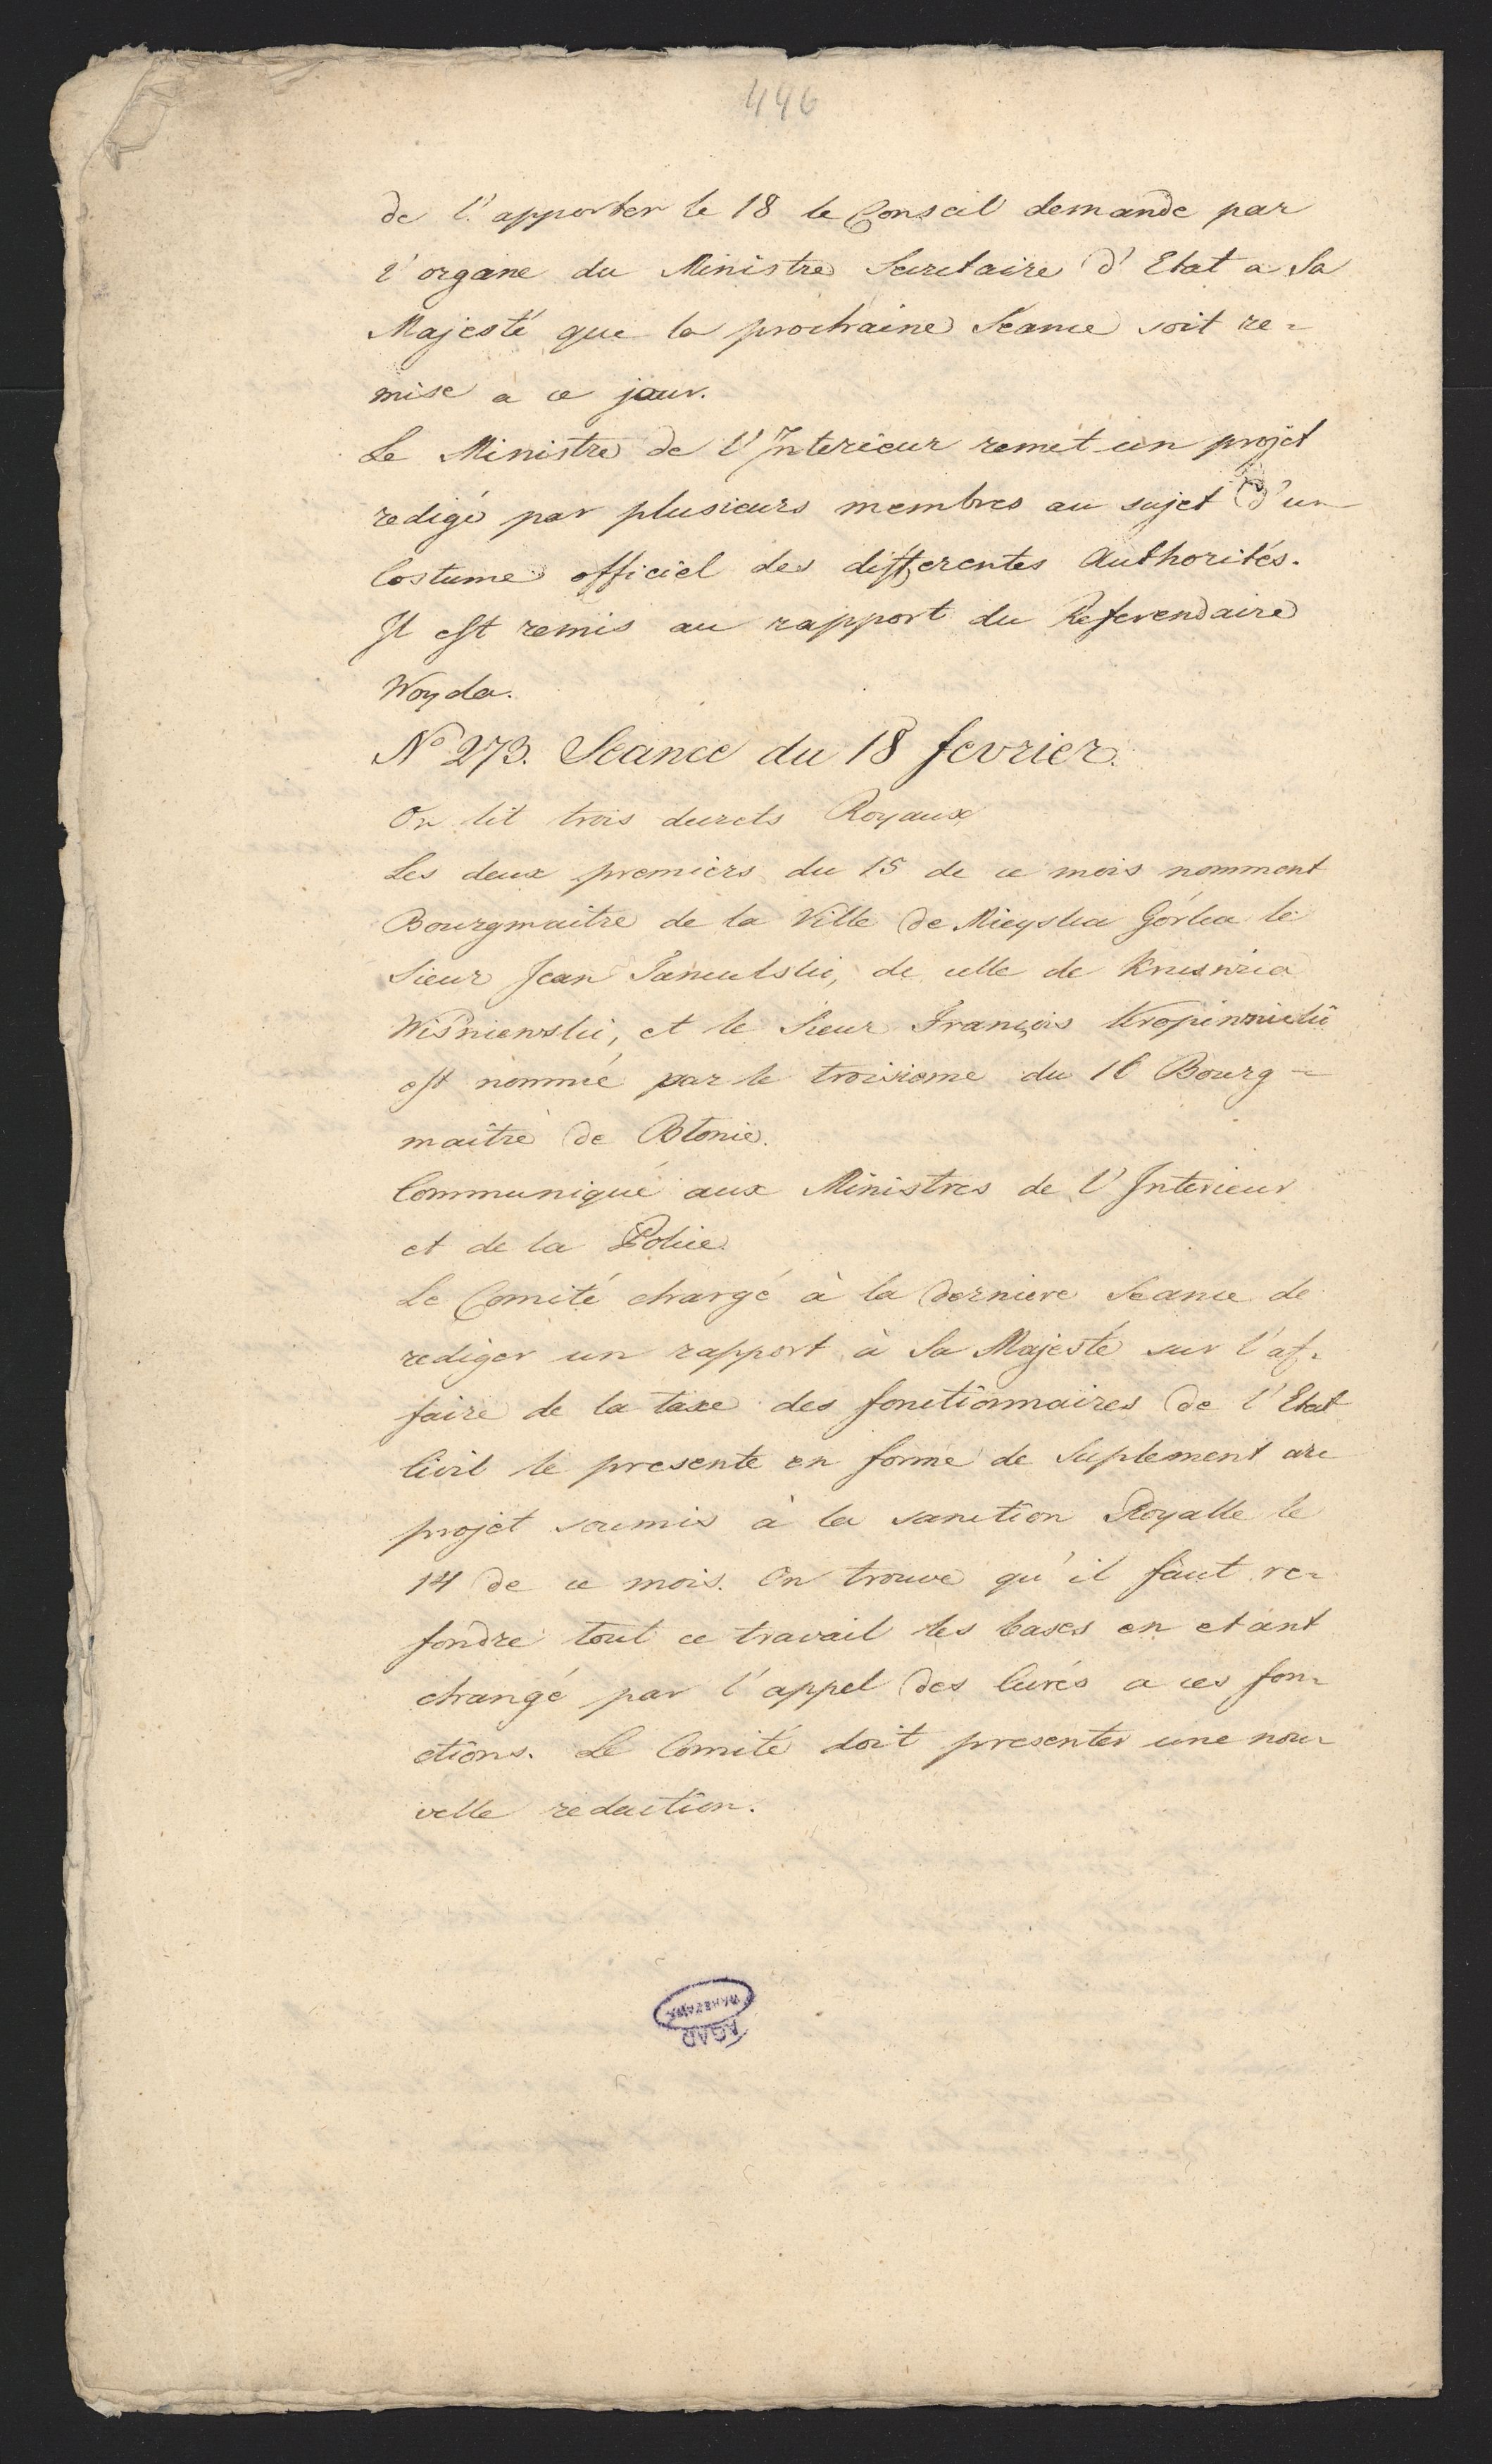 496
de l'apporter le 18 le Conseil demande par
l'organe du Ministre Secretaire d'Etat a Sa
Majesté que la prochaine Séance soit re=
mise a ce jour.
Le Ministre de l'Interieur remet un projet
redigé par plusieurs membres au sujet d'un
Costume officiel des differentes Authorités.
Il est remis au rapport du Referendaire
Woyda.
No 273. Seance du 18 fevrier.
On lit trois decrets Royaux
Les deux premiers du 15 de ce mois nomment
Bourgmaitre de la Ville de Mieyska Górka le
Sieur Jean de celle de
Wiśniewski, et le Sieur François
est nommé par le troisieme du 16 Bourg=
maître de Błonie.
Communiqué aux Ministres de l'Interieur
et de la Police.
Le Comité chargé à la derniere Seance de
rediger un rapport à Sa Majesté sur l'af=
faire de la taxe des fonctionnaires de l'Etat
Civil le presente en forme de Suplement au
projet soumis à la sanction Royalle le
14 de ce mois. On trouve qu'il faut re=
fondre tout ce travail les bases en etant
changé par l'appel des Curés a ces fon=
ctions. Le Comité doit presenter une nou=
velle redaction.
AGAD
WARSZAWA